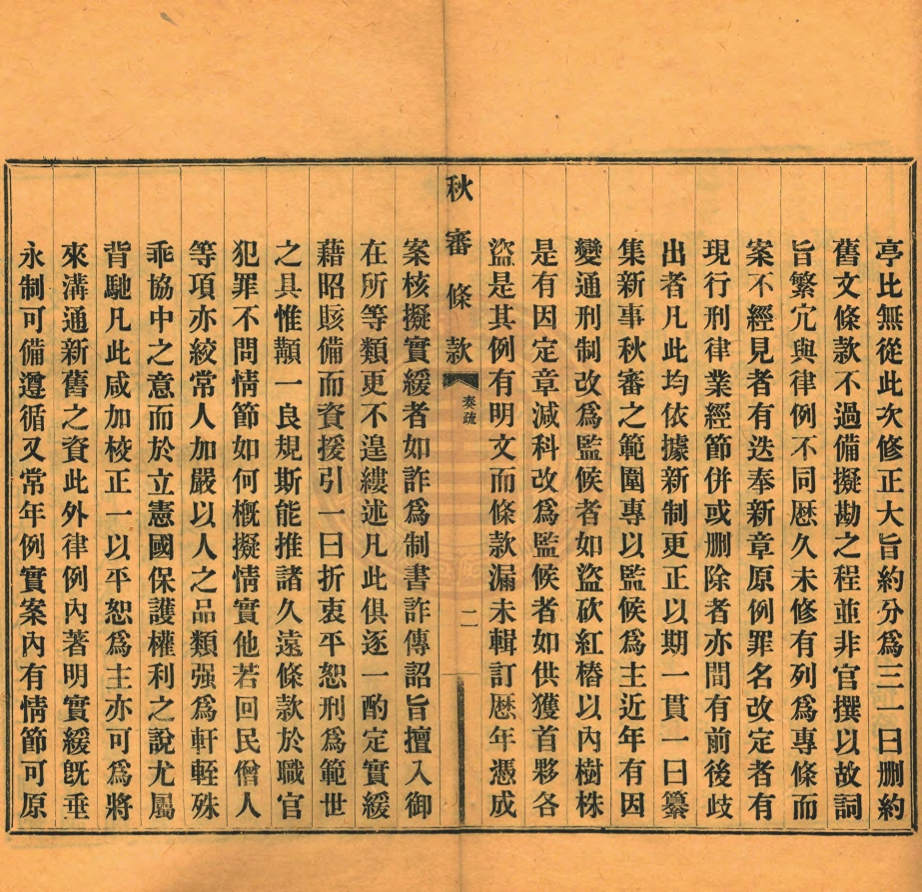 亭比無從此次修正大旨約分爲三一曰刪約
舊文條款不過備擬勘之程並非官撰以故詞
旨繁宂與律例不同厯久未修有列爲專條而
案不經見者有迭奉新章原例罪名改定者有
現行刑律業經節併或删除者亦間有前後歧
出者凡此均依據新制更正以期一貫一曰纂
集新事秋審之範圍專以監候爲主近年有因
變通刑制改爲監候者如盜砍紅樁以內樹株
是有因定章減科改爲監候者如供獲首夥各
盜是其例有明文而條款漏未輯訂厯年憑成
秋審條款
奏疏
二
案核擬實緩者如詐爲制書詐傳詔旨擅入御
在所等類更不遑縷述凡此俱逐一酌定實緩
藉昭賅備而資援引一曰折衷平恕刑爲範世
之具惟顜一良規斯能推諸久遠條款於職官
犯罪不問情節如何槪擬情實他若回民僧人
等項亦絞常人加嚴以人之品類强爲軒輊殊
乖協中之意而於立憲國保護權利之說尤屬
背馳凡此咸加校正一以平恕爲主亦可爲將
來溝通新舊之資此外律例內著明實緩旣垂
永制可備遵循又常年例實案內有情節可原